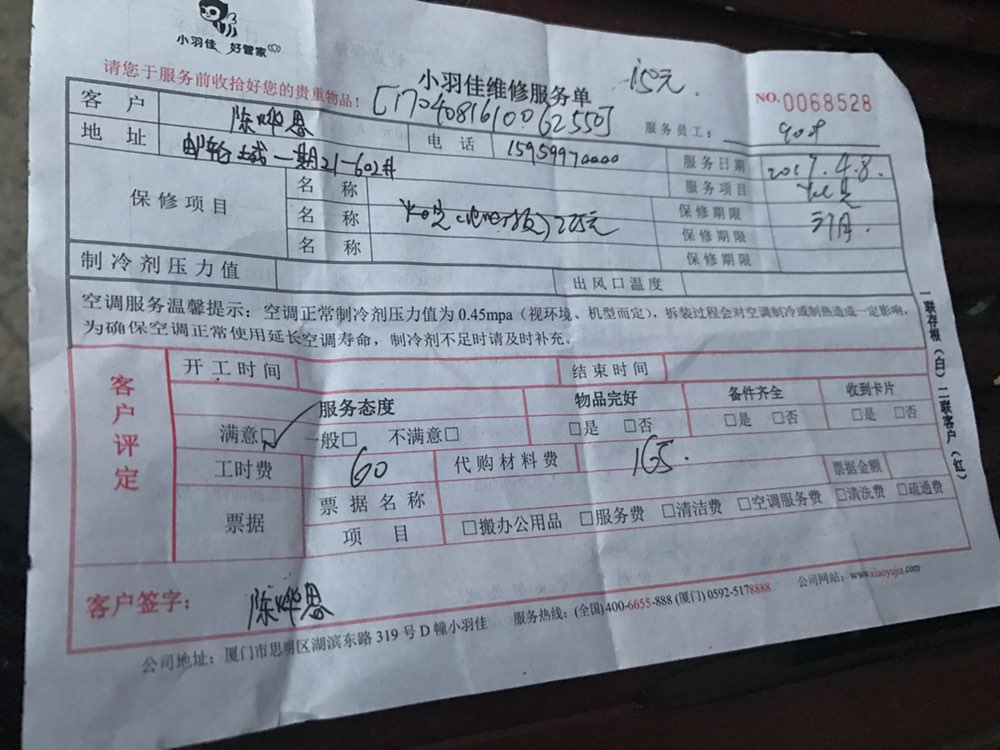 小羽佳 好管家
请您于服务前收拾好您的贵重物品！
小羽佳维修服务单
150元
NO.0068528
[1704081610062550]
服务员工：
客户 陈晔恩 电话 15959970000 服务日期 2017.4.8.
地址 邮轮城一期21-602# 服务项目
保修项目 名称 保修期限
名称 225元 保修期限
名称 保修期限
制冷剂压力值 出风口温度
空调服务温馨提示：空调正常制冷剂压力值为 0.45mpa（视环境、机型而定），拆装过程会对空调制冷或制热造成一定影响，
为确保空调正常使用延长空调寿命，制冷剂不足时请及时补充。
客户评定
开工时间 结束时间
服务态度 物品完好 备件齐全 收到卡片
满意□ 一般□ 不满意□ □是 □否 □是 □否 □是 □否
工时费 60 代购材料费 165.
票据 票据名称 票据金额
项目 □搬办公用品 □服务费 □清洁费 □空调服务费 □清洗费 □疏通费
客户签字： 陈晔恩
公司地址：厦门市思明区湖滨东路 319 号 D 幢小羽佳 服务热线：(全国)400-6655-888 (厦门) 0592-5178888 公司网站：www.xiaoyujia.com
一联存根（白）二联客户（红）